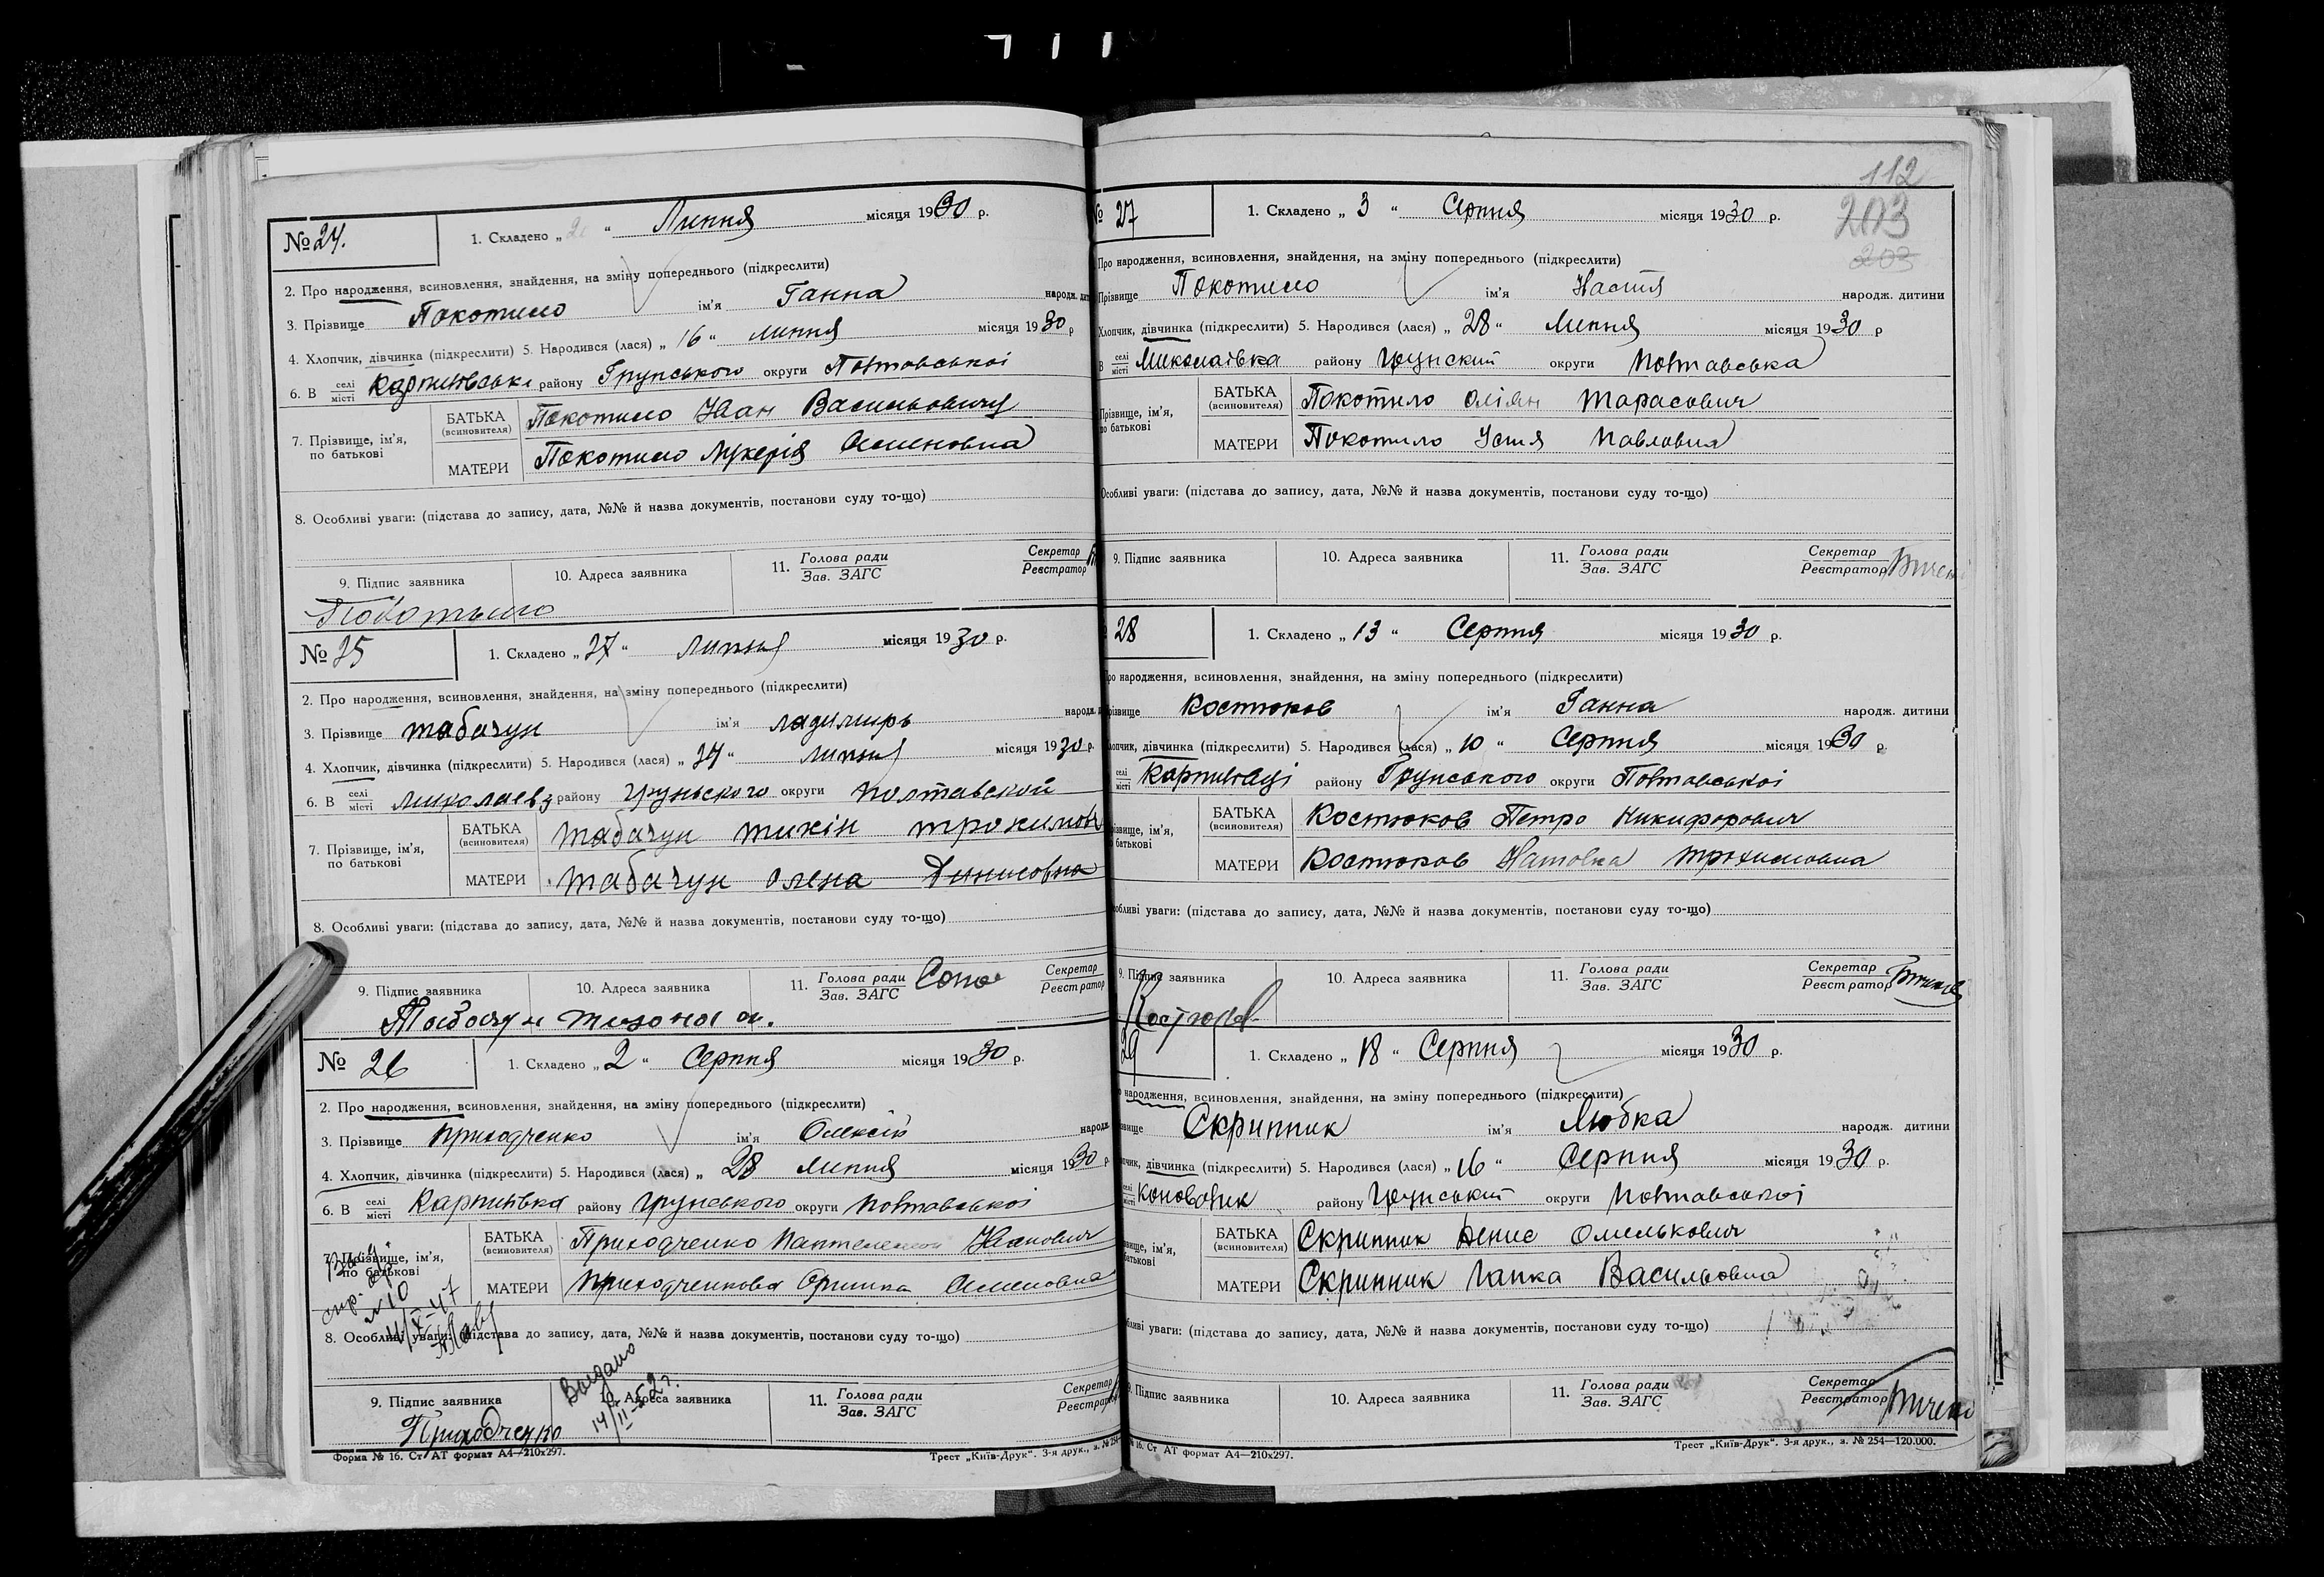 № 24.
1. Складено „ 20 “ Липня місяця 1930 р.
2. Про народження, всиновлення, знайдення, на зміну попереднього (підкреслити)
3. Прізвище Покотило ім'я Ганна народж.
4. Хлопчик, дівчинка (підкреслити) 5. Народився (лася) „ 16 “ липня місяця 1930 р
6. В селі місті району Грунського округи Полтавської
7. Прізвище, ім'я, по батькові
БАТЬКА (всиновителя) Покотило Іван Васильович
МАТЕРИ Покотило Лукерія Семеновна
8. Особливі уваги: (підстава до запису, дата, №№ й назва документів, постанови суду то-що)
9. Підпис заявника 10. Адреса заявника 11. Голова ради Зав. ЗАГС Секретар Реєстратор
Покотыло
№ 25
1. Складено „ 27 “ липня місяця 1930 р.
2. Про народження, всиновлення, знайдення, на зміну попереднього (підкреслити)
3. Прізвище Табачун ім'я ладимирь народж.
4. Хлопчик, дівчинка (підкреслити) 5. Народився (лася) „ 24 “ липня місяця 1930 р.
6. В селі місті району Груньского округи полтавской
7. Прізвище, ім'я, по батькові
БАТЬКА (всиновителя) Табачун тихін трохимов
МАТЕРИ Табачун олена Динисовна
8. Особливі уваги: (підстава до запису, дата, №№ й назва документів, постанови суду то-що)
9. Підпис заявника 10. Адреса заявника 11. Голова ради Зав. ЗАГС Секретар Реєстратор
№ 26
1. Складено „ 2 “ Серпня місяця 1930 р.
2. Про народження, всиновлення, знайдення, на зміну попереднього (підкреслити)
3. Прізвище Приходченко ім'я Олексій народж.
4. Хлопчик, дівчинка (підкреслити) 5. Народився (лася) „ 28 липня місяця 1930 р
6. В селі місті Карпинівка району Грунського округи Полтавської
7. Прізвище, ім'я, по батькові
БАТЬКА (всиновителя) Приходченко Пантелемон Іванович
МАТЕРИ Приходченкова Оришка Семеновна
№ 10
8. Особливі уваги: (підстава до запису, дата, №№ й назва документів, постанови суду то-що)
9. Підпис заявника 10. Адреса заявника 11. Голова ради Зав. ЗАГС Секретар Реєстратор
Приходченко
14/II-52 г.
Форма № 16. Ст. АТ формат А4—210х297. Трест „Київ-Друк“. 3-я друк., з. № 254
112
203
203
№ 27
1. Складено „ 3 “ Серпня місяця 1930 р.
Про народження, всиновлення, знайдення, на зміну попереднього (підкреслити)
Прізвище Покотило ім'я Настя народж. дитини
Хлопчик, дівчинка (підкреслити) 5. Народився (лася) „ 28 “ Липня місяця 1930 р
В селі місті Миколаівка району Грунский округи Полтавська
Прізвище, ім'я, по батькові
БАТЬКА (всиновителя) Покотило Оліян Тарасович
МАТЕРИ Покотило Устя Павловна
Особливі уваги: (підстава до запису, дата, №№ й назва документів, постанови суду то-що)
9. Підпис заявника 10. Адреса заявника 11. Голова ради Зав. ЗАГС Секретар Реєстратор
28
1. Складено „ 13 “ Серпня місяця 1930 р.
народження, всиновлення, знайдення, на зміну попереднього (підкреслити)
Костюков ім'я Ганна народж. дитини
дівчинка (підкреслити) 5. Народився (лася) „ 10 “ Серпня місяця 1930 р.
селі місті району Грунського округи Полтавської
ім'я, батькові
БАТЬКА (всиновителя) Костюков Петро Никифорович
МАТЕРИ Костюков Наталка Трохимовна
уваги: (підстава до запису, дата, №№ й назва документів, постанови суду то-що)
9. Підпис заявника 10. Адреса заявника 11. Голова ради Зав. ЗАГС Секретар Реєстратор
29
1. Складено „ 18 “ Серпня місяця 1930 р.
народження, всиновлення, знайдення, на зміну попереднього (підкреслити)
Скрипник ім'я Любка народж. дитини
дівчинка (підкреслити) 5. Народився (лася) „ 16 “ Серпня місяця 1930 р.
селі місті району Грунський округи Полтавської
ім'я, батькові
БАТЬКА (всиновителя) Скрипник Денис Омелькович
МАТЕРИ Скрипник Гапка Васильовна
уваги: (підстава до запису, дата, №№ й назва документів, постанови суду то-що)
9. Підпис заявника 10. Адреса заявника 11. Голова ради Зав. ЗАГС Секретар Реєстратор
№ 16. Ст АТ формат А4—210х297. Трест „Київ-Друк“. 3-я друк., з. № 254—120.000.